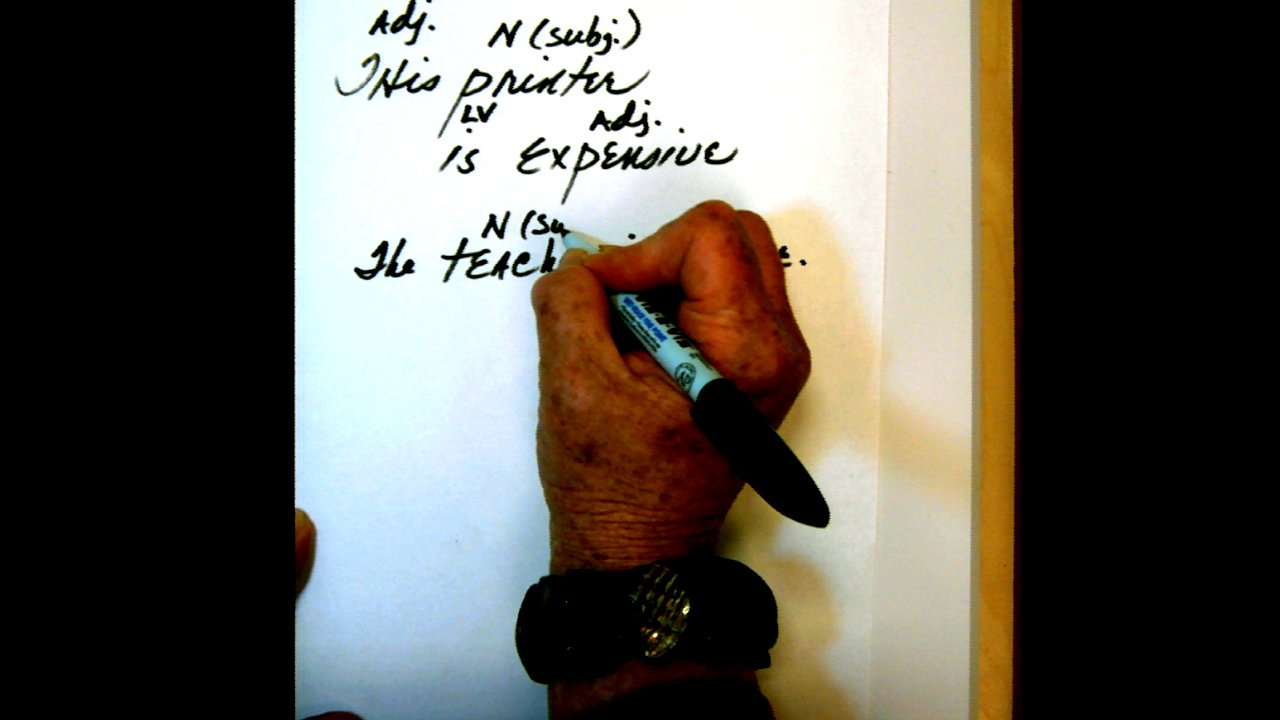 Adj. N (subj.)
THis printer
LV Adj.
is Expensive
N (su
The tEACh